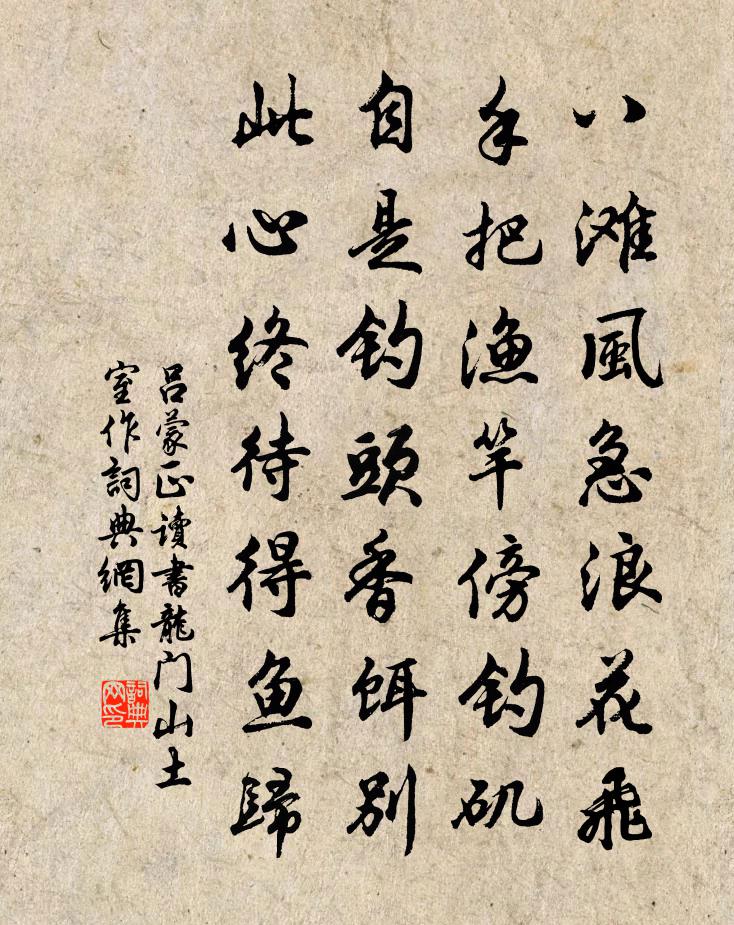 八滩風急浪花飛
手把渔竿傍钓矶
自是钓頭香餌别
此心终待得鱼歸
吕蒙正讀書龍门山土
室作詞典網集
詞典网印